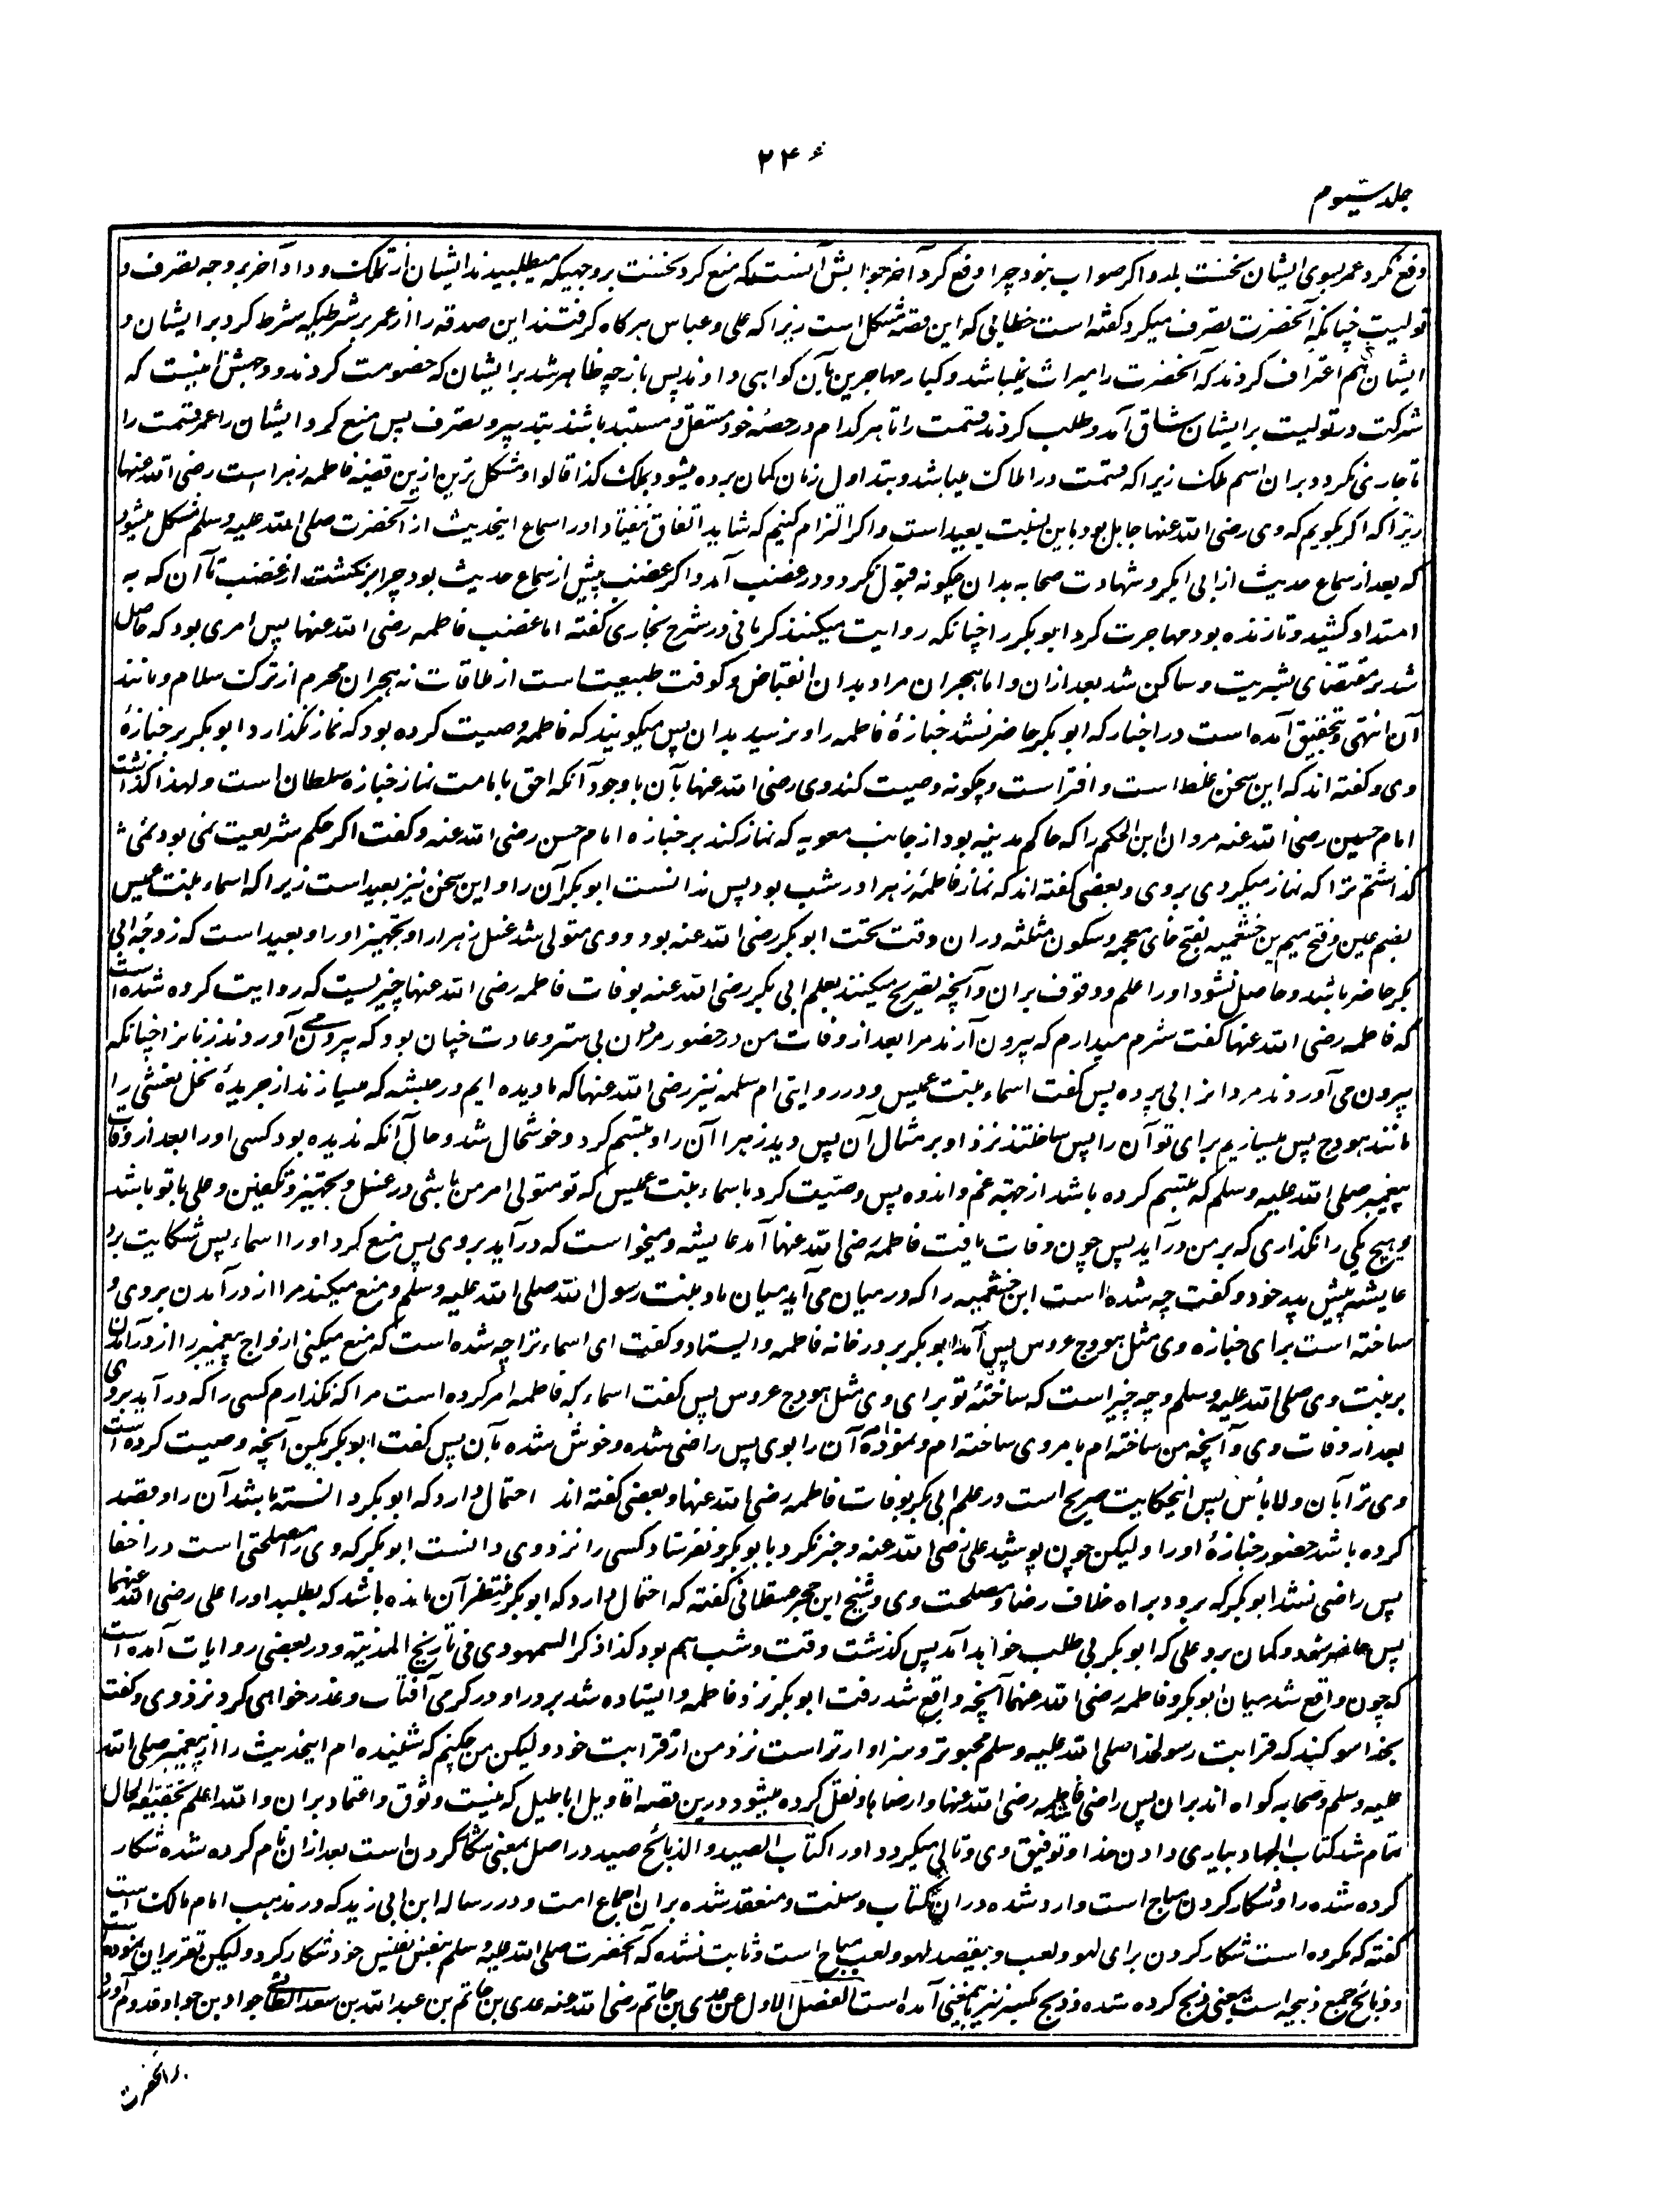 ۲۴
جلد سیوم
دفع نکرد عمر بسوی ایشان نخست بلد و اگر صواب نبود چرا دفع کرد آخر جوابش آنست که منع کرد نخست بروجهیکه میطلبیدند ایشان از تملک و داد آخر بروجه تصرف و
تولیت چنانکه آنحضرت تصرف میکرد گفته است خطابی که این قصه مشکل است زیرا که علی و عباس هرگاه گرفتند این صدقه را از عمر بر شرطیکه شرط کرد بر ایشان و
ایشان هم اعتراف کردند که آنحضرت را میراث نمیباشد و کبار مهاجرین بآن گواهی دادند پس باز چه ظاهر شد بر ایشان که خصومت کردند و وجهش اینست که
شرکت در تولیت بر ایشان شاق آمد و طلب کردند قسمت را تا هر کدام در حصه خود مستقل و مستبد باشند بتدبیر و تصرف پس منع کرد ایشان را عمر قسمت را
تا جاری نگردد بران اسم ملک زیرا که قسمت در املاک میباشد و بتداول زمان گمان برده میشود بملک کذا قالوا و مشکل ترین ازین قضیه فاطمه زهرا است رضی الله عنها
زیرا که اگر بگویم که وی رضی الله عنها جاهل بود باین سنت بعید است و اگر التزام کنیم که شاید اتفاق نیفتاد او را سماع اینحدیث از آنحضرت صلی الله علیه وسلم مشکل میشود
که بعد از سماع حدیث از ابی ابکر و شهادت صحابه بدان چگونه قبول نکرد و در غضب آمد و اگر غضب پیش از سماع حدیث بود چرا برنگشت از غضب تا آن که به
امتداد کشید و تا زنده بود مهاجرت کرد ابو بکر را چنانکه روایت میکنند کرمانی در شرح بخاری گفته اما غضب فاطمه رضی الله عنها پس امری بود که حاصل
شد بر مقتضای بشریت و ساکن شد بعد ازان و اما هجران مراد بدان انقباض و کوفت طبیعت است از ملاقات نه هجران محرم از ترک سلام و مانند
آن انتهی و تحقیق آمده است در اخبار که ابو بکر حاضر نشد جنازهٔ فاطمه را و نرسید بدان پس میگویند که فاطمه وصیت کرده بود که نماز نگذارد ابو بکر بر جنازهٔ
وی و گفته اند که این سخن غلط است و افترا است و چگونه وصیت کند وی رضی الله عنها بآن با وجود آنکه احق بامامت نماز جنازه سلطان است و لهذا گذاشت
امام حسین رضی الله عنه مروان ابن الحکم را که حاکم مدینه بود از جانب معویه که نماز کند بر جنازه امام حسن رضی الله عنه و گفت اگر حکم شریعت نمی بود نمی
گذاشتم ترا که نماز میکردی بر وی و بعضی گفته اند که نماز فاطمه زهرا در شب بود پس ندانست ابو بکر آن را و این سخن نیز بعید است زیرا که اسماء بنت عمیس
بضم عین و فتح میم بن خثعمیه بفتح خای معجمه و سکون مثلثه دران وقت تحت ابو بکر رضی الله عنه بود و وی متولی شد غسل زهرا را و تجهیز او را و بعید است که زوجهٔ ابی
بکر حاضر باشد و حاصل نشود او را علم و وقوف بران و آنچه تصریح میکنند بعلم ابی بکر رضی الله عنه بوفات فاطمه رضی الله عنها چیزیست که روایت کرده شده است
که فاطمه رضی الله عنها گفت شرم میدارم که بیرون آرند مرا بعد از وفات من در حضور مردان بی ستر و عادت چنان بود که بیرون می آوردند زنان را چنانکه
بیرون می آوردند مردان را بی پرده پس گفت اسماء بنت عمیس و در روایتی ام سلمه نیز رضی الله عنها که ما دیده ایم در حبشه که میسازند از جریدهٔ نخل نعشی را
مانند هودج پس میسازیم برای تو آن را پس ساختند نزد او بر مثال آن پس دید زهرا آن را و تبسم کرد و خوشحال شد و حال آنکه ندیده بود کسی او را بعد از وفات
پیغمبر صلی الله علیه وسلم که تبسم کرده باشد از جهة غم و اندوه پس وصیت کرد باسماء بنت عمیس که تو متولی امر من باشی در غسل و تجهیز و تکفین و علی با تو باشد
و هیچ یکی را نگذاری که بر من درآید پس چون وفات یافت فاطمه رضی الله عنها آمد عایشه و میخواست که درآید بر وی پس منع کرد او را اسماء پس شکایت برد
عایشه پیش پدر خود و گفت چه شده است این خثعمیه را که درمیان می آید میان ما و بنت رسول الله صلی الله علیه وسلم و منع میکند مرا از درآمدن بر وی و
ساخته است برای جنازه وی مثل هودج عروس پس آمد ابو بکر بر در خانه فاطمه و ایستاد و گفت ای اسماء ترا چه شده است که منع میکنی ازواج پیغمبر را از درآمدن
بر بنت وی صلی الله علیه وسلم و چه چیز است که ساختهٔ تو برای وی مثل هودج عروس پس گفت اسماء که فاطمه امر کرده است مرا که نگذارم کسی را که درآید بر وی
بعد از وفات وی و آنچه من ساخته ام بامر وی ساخته ام و نموده ام آن را بوی پس راضی شده و خوش شده بآن پس گفت ابو بکر بکن آنچه وصیت کرده است
وی ترا بآن و لا بأس پس اینحکایت صریح است در علم ابی بکر بوفات فاطمه رضی الله عنها و بعضی گفته اند احتمال دارد که ابو بکر دانسته باشد آن را و قصد
کرده باشد حضور جنازهٔ او را و لیکن چون پوشید علی رضی الله عنه و خبر نکرد بابو بکر و نفرستاد کسی را نزد وی دانست ابو بکر که وی را مصلحتی است در اخفا
پس راضی نشد ابو بکر که برود بر راه خلاف رضا و مصلحت وی و شیخ ابن حجر عسقلانی گفته که احتمال دارد که ابو بکر منتظر آن مانده باشد که بطلبد او را علی رضی الله عنهما
پس حاضر شود و گمان برد علی که ابو بکر بی طلب خواهد آمد پس گذشت وقت و شب هم بود کذا ذکر السمهودی فی تاریخ المدینة و در بعضی روایات آمده است
که چون واقع شد میان ابو بکر و فاطمه رضی الله عنهما آنچه واقع شد رفت ابو بکر نزد فاطمه و ایستاده شد بر در او در گرمی آفتاب و عذر خواهی کرد نزد وی و گفت
بخدا سوگند که قرابت رسول خدا صلی الله علیه وسلم محبوبتر و سزاوارتر است نزد من از قرابت خود و لیکن من چکنم که شنیده ام اینحدیث را از پیغمبر صلی الله
علیه وسلم و صحابه گواه اند بران پس راضی شد فاطمه رضی الله عنها و ارضاها و نقل کرده میشود درین قصه اقاویل اباطیل که نیست وثوق و اعتماد بران و الله اعلم بحقیقة الحال
تمام شد کتاب الجهاد بیاری دادن خدا و توفیق وی و تالی میگردد او را کتاب الصید و الذبائح صید در اصل بمعنی شکار کردن است بعد ازان نام کرده شده شکار
کرده شده را و شکار کردن مباح است وارد شده دران کتاب و سنت و منعقد شده بران اجماع امت و در رساله ابن ابی زید که در مذهب امام مالک است
گفته که مکروه است شکار کردن برای لهو و لعب و بقصد لهو و لعب مباح است و ثابت نشده که آنحضرت صلی الله علیه وسلم بنفس نفیس خود شکار کرد و لیکن تقریر آن نموده است
و ذبائح جمع ذبیحه است بمعنی ذبح کرده شده و ذبح بکسر نیز باینمعنی آمده است الفصل الاول عن عدی بن حاتم رضی الله عنه عدی بن حاتم بن عبدالله بن سعد الطائی جواد بن جواد قدوم آورد
بر آنحضرت